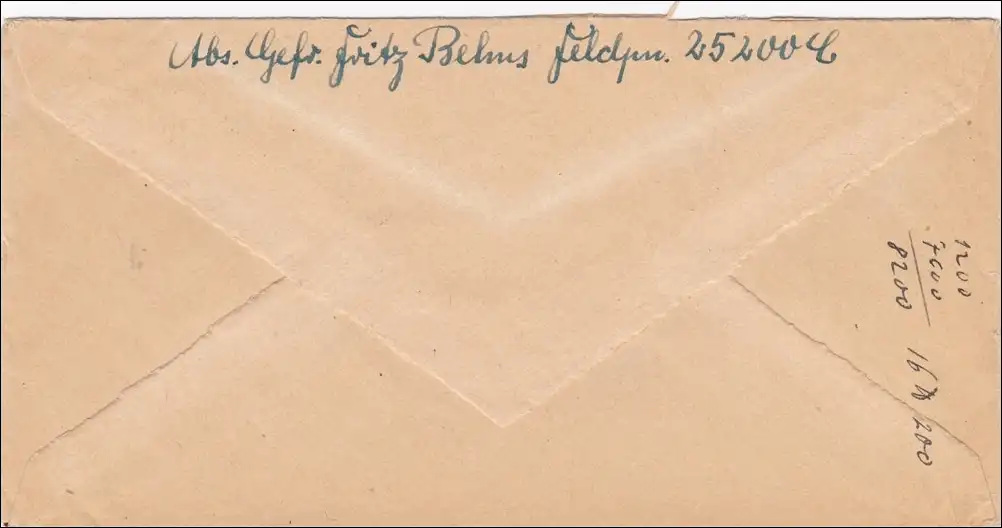 Abs. Gefr. Fritz Behns Feldpn. 25200C
1200
7000
8200
200